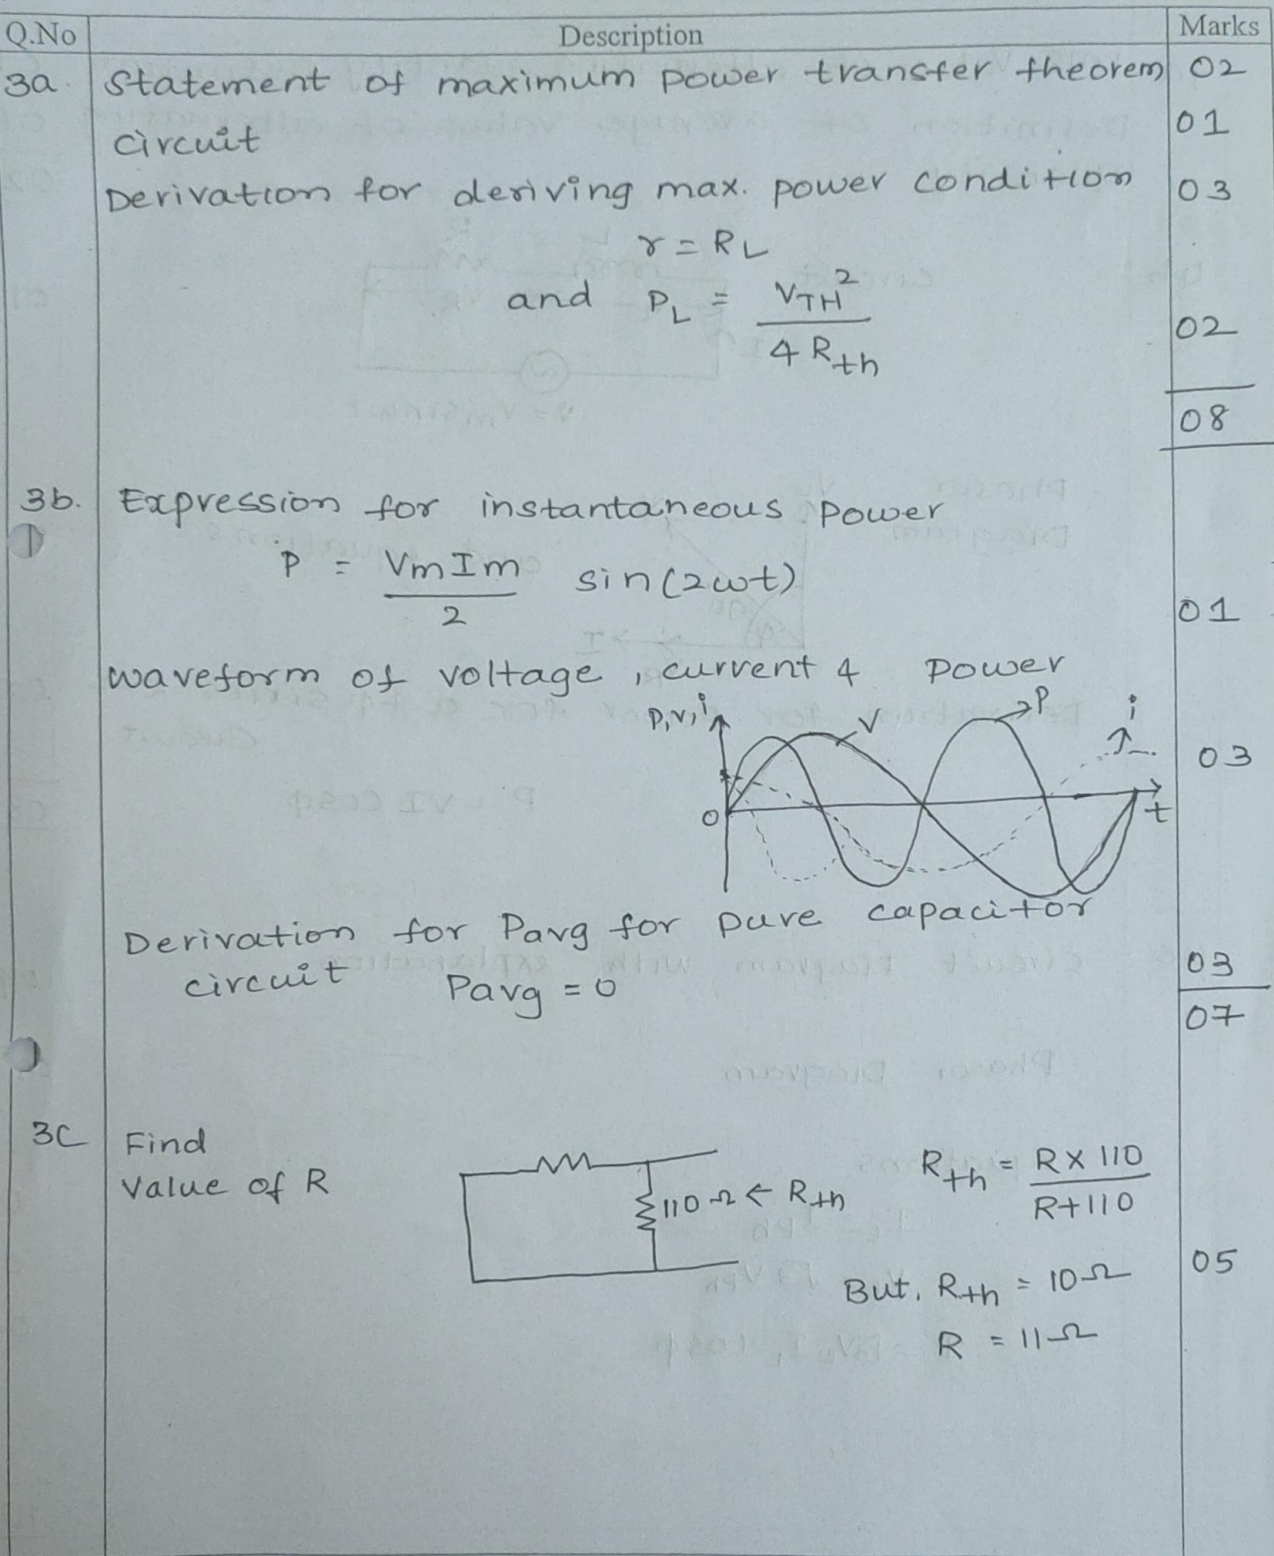 Q.No Description Marks
3a. Statement of maximum power transfer theorem 02
circuit 01
Derivation for deriving max. power condition 03
r = RL
and PL = VTH² / 4 Rth 02
08
3b. Expression for instantaneous power
p = VmIm / 2 sin(2ωt) 01
waveform of voltage, current & power
P,v,i V P i 03
0 t
Derivation for Pavg for pure capacitor
circuit Pavg = 0 03
07
3C Find
Value of R
110 Ω ← Rth
Rth = R X 110 / R+110
But, Rth = 10 Ω 05
R = 11 Ω